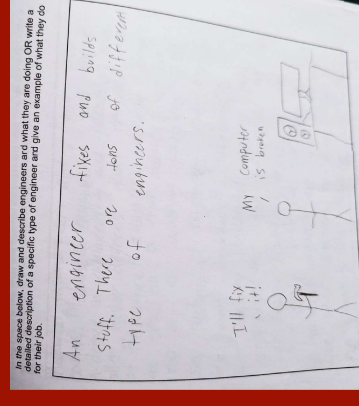 In the space below, draw and describe engineers and what they are doing OR write a
detailed description of a specific type of engineer and give an example of what they do
for their job.
An engineer fixes and builds
stuff. There are tons of different
type of engineers.
I'll fix
it!
My computer
is broken